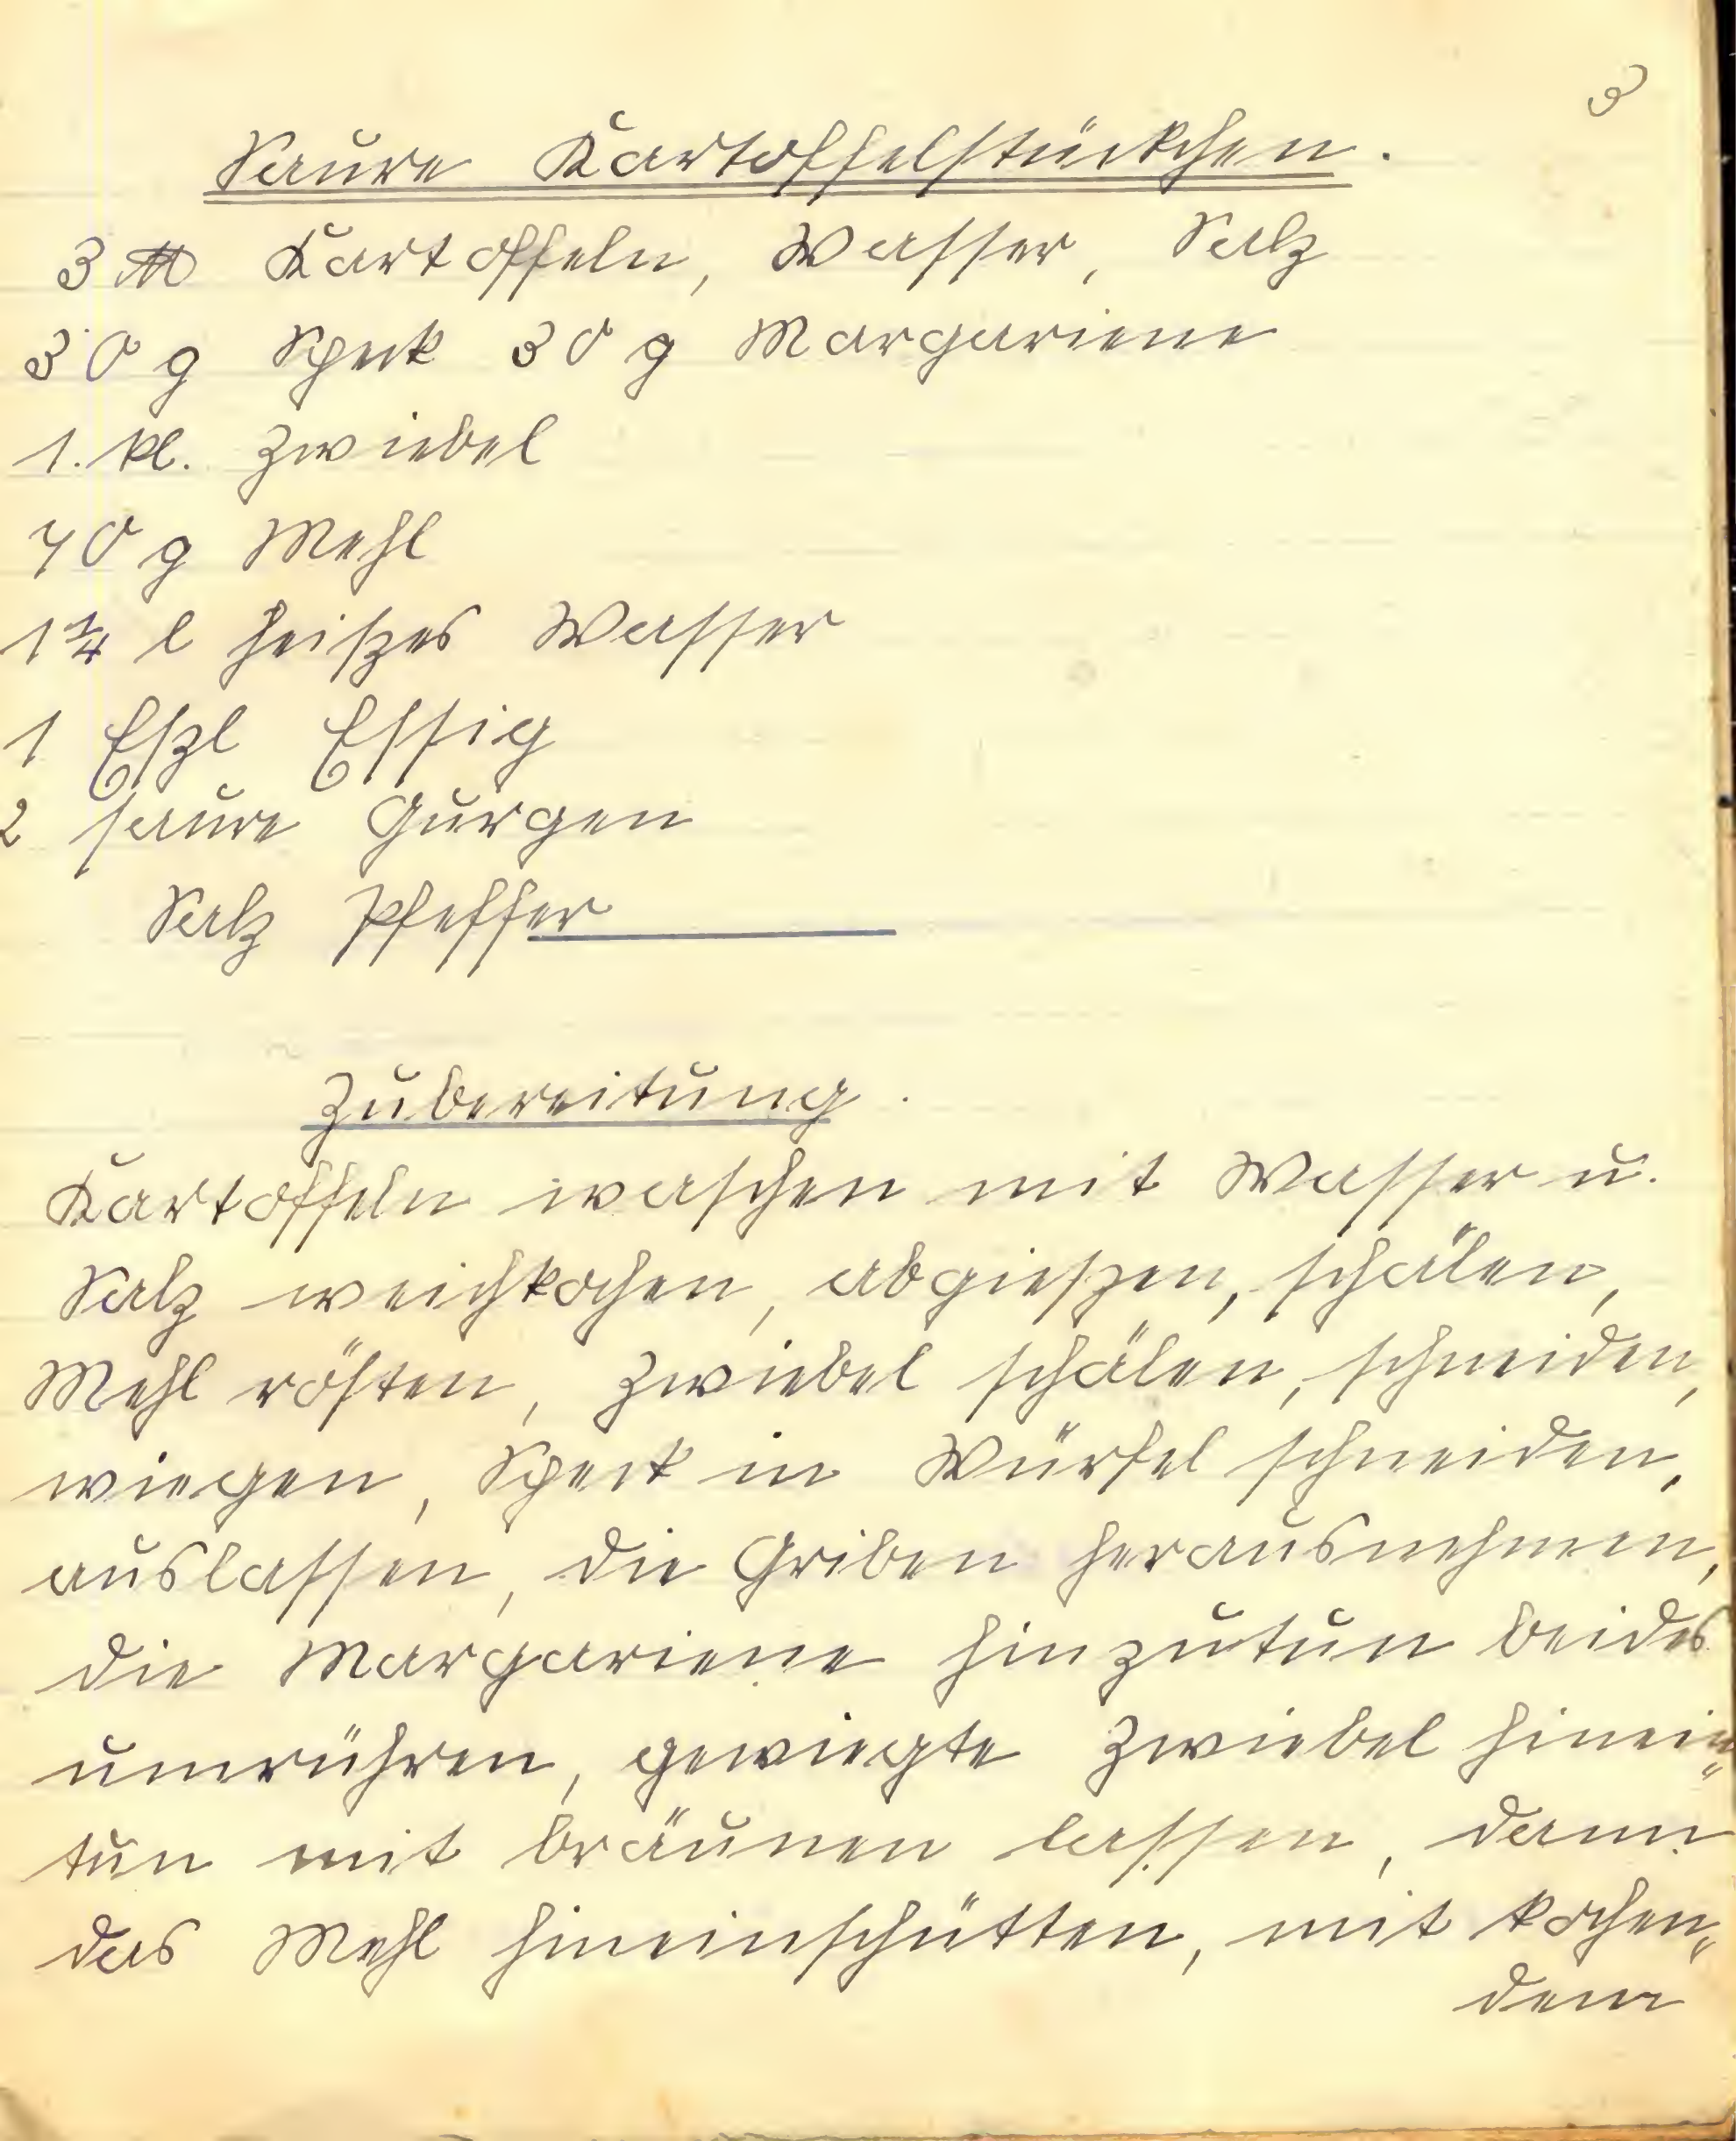 3
Saure Kartoffelstückchen.
3 ℔ Kartoffeln, Wasser, Salz
30 g Speck 30 g Margariene
1. kl. Zwiebel
70 g Mehl
1¼ l heißes Wasser
1 Eßl Essig
2 saure Gurgen
Salz Pfeffer
Zubereitung.
Kartoffeln waschen mit Wasser u.
Salz weichkochen, abgießen, schälen,
Mehl rösten, Zwiebel schälen, schneiden,
wiegen, Speck in Würfel schneiden,
auslassen, die Griben herausnehmen,
die Margariene hinzutun beides
umrühren, gewiegte Zwiebel hinein„
tun mit bräunen lassen, dann
das Mehl hineinschütten, mit kochen„
dem